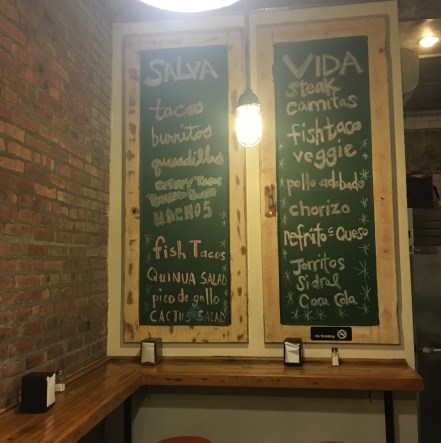 SALVA
tacos
burritos
quesadillas
NACHOS
fish Tacos
QUINUA SALAD
pico de gallo
CACTUS SALAD
VIDA
steak
carnitas
fish taco
veggie
pollo adobado
chorizo
refrito = Queso
Jarritos
Sidral
Coca Cola
No Smoking